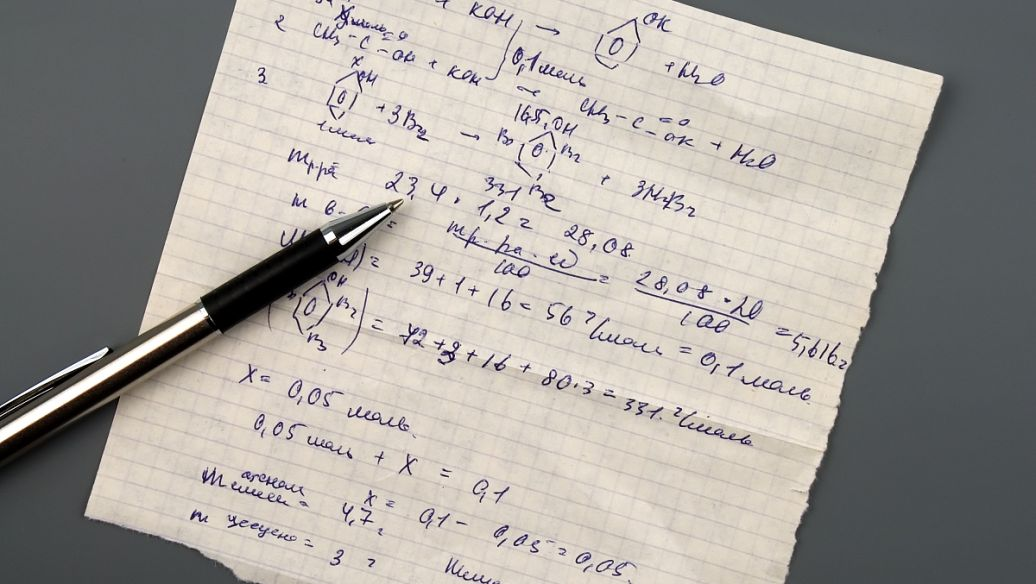 + KOH → OK + H2O
2 CH3 - C = O - OH + KOH 0,1 моль → CH3 - C = O - OK + H2O
3 x OH + 3Br2 → 16,55, OH Br Br Br + 3HBr
1 моль 331
mр-ра 23,4 · 1,2 = 28,08
m в-ва = mр-ра · ω / 100 = 28,08 · 20 / 100 = 5,616 г
= 39 + 1 + 16 = 56 г/моль = 0,1 моль
OH Br Br = 72 + 3 + 16 + 80 · 3 = 331 г/моль
x = 0,05 моль.
0,05 моль + x = 0,1
x = 0,1 - 0,05 = 0,05.
m = 4,7 г
m = 3 г